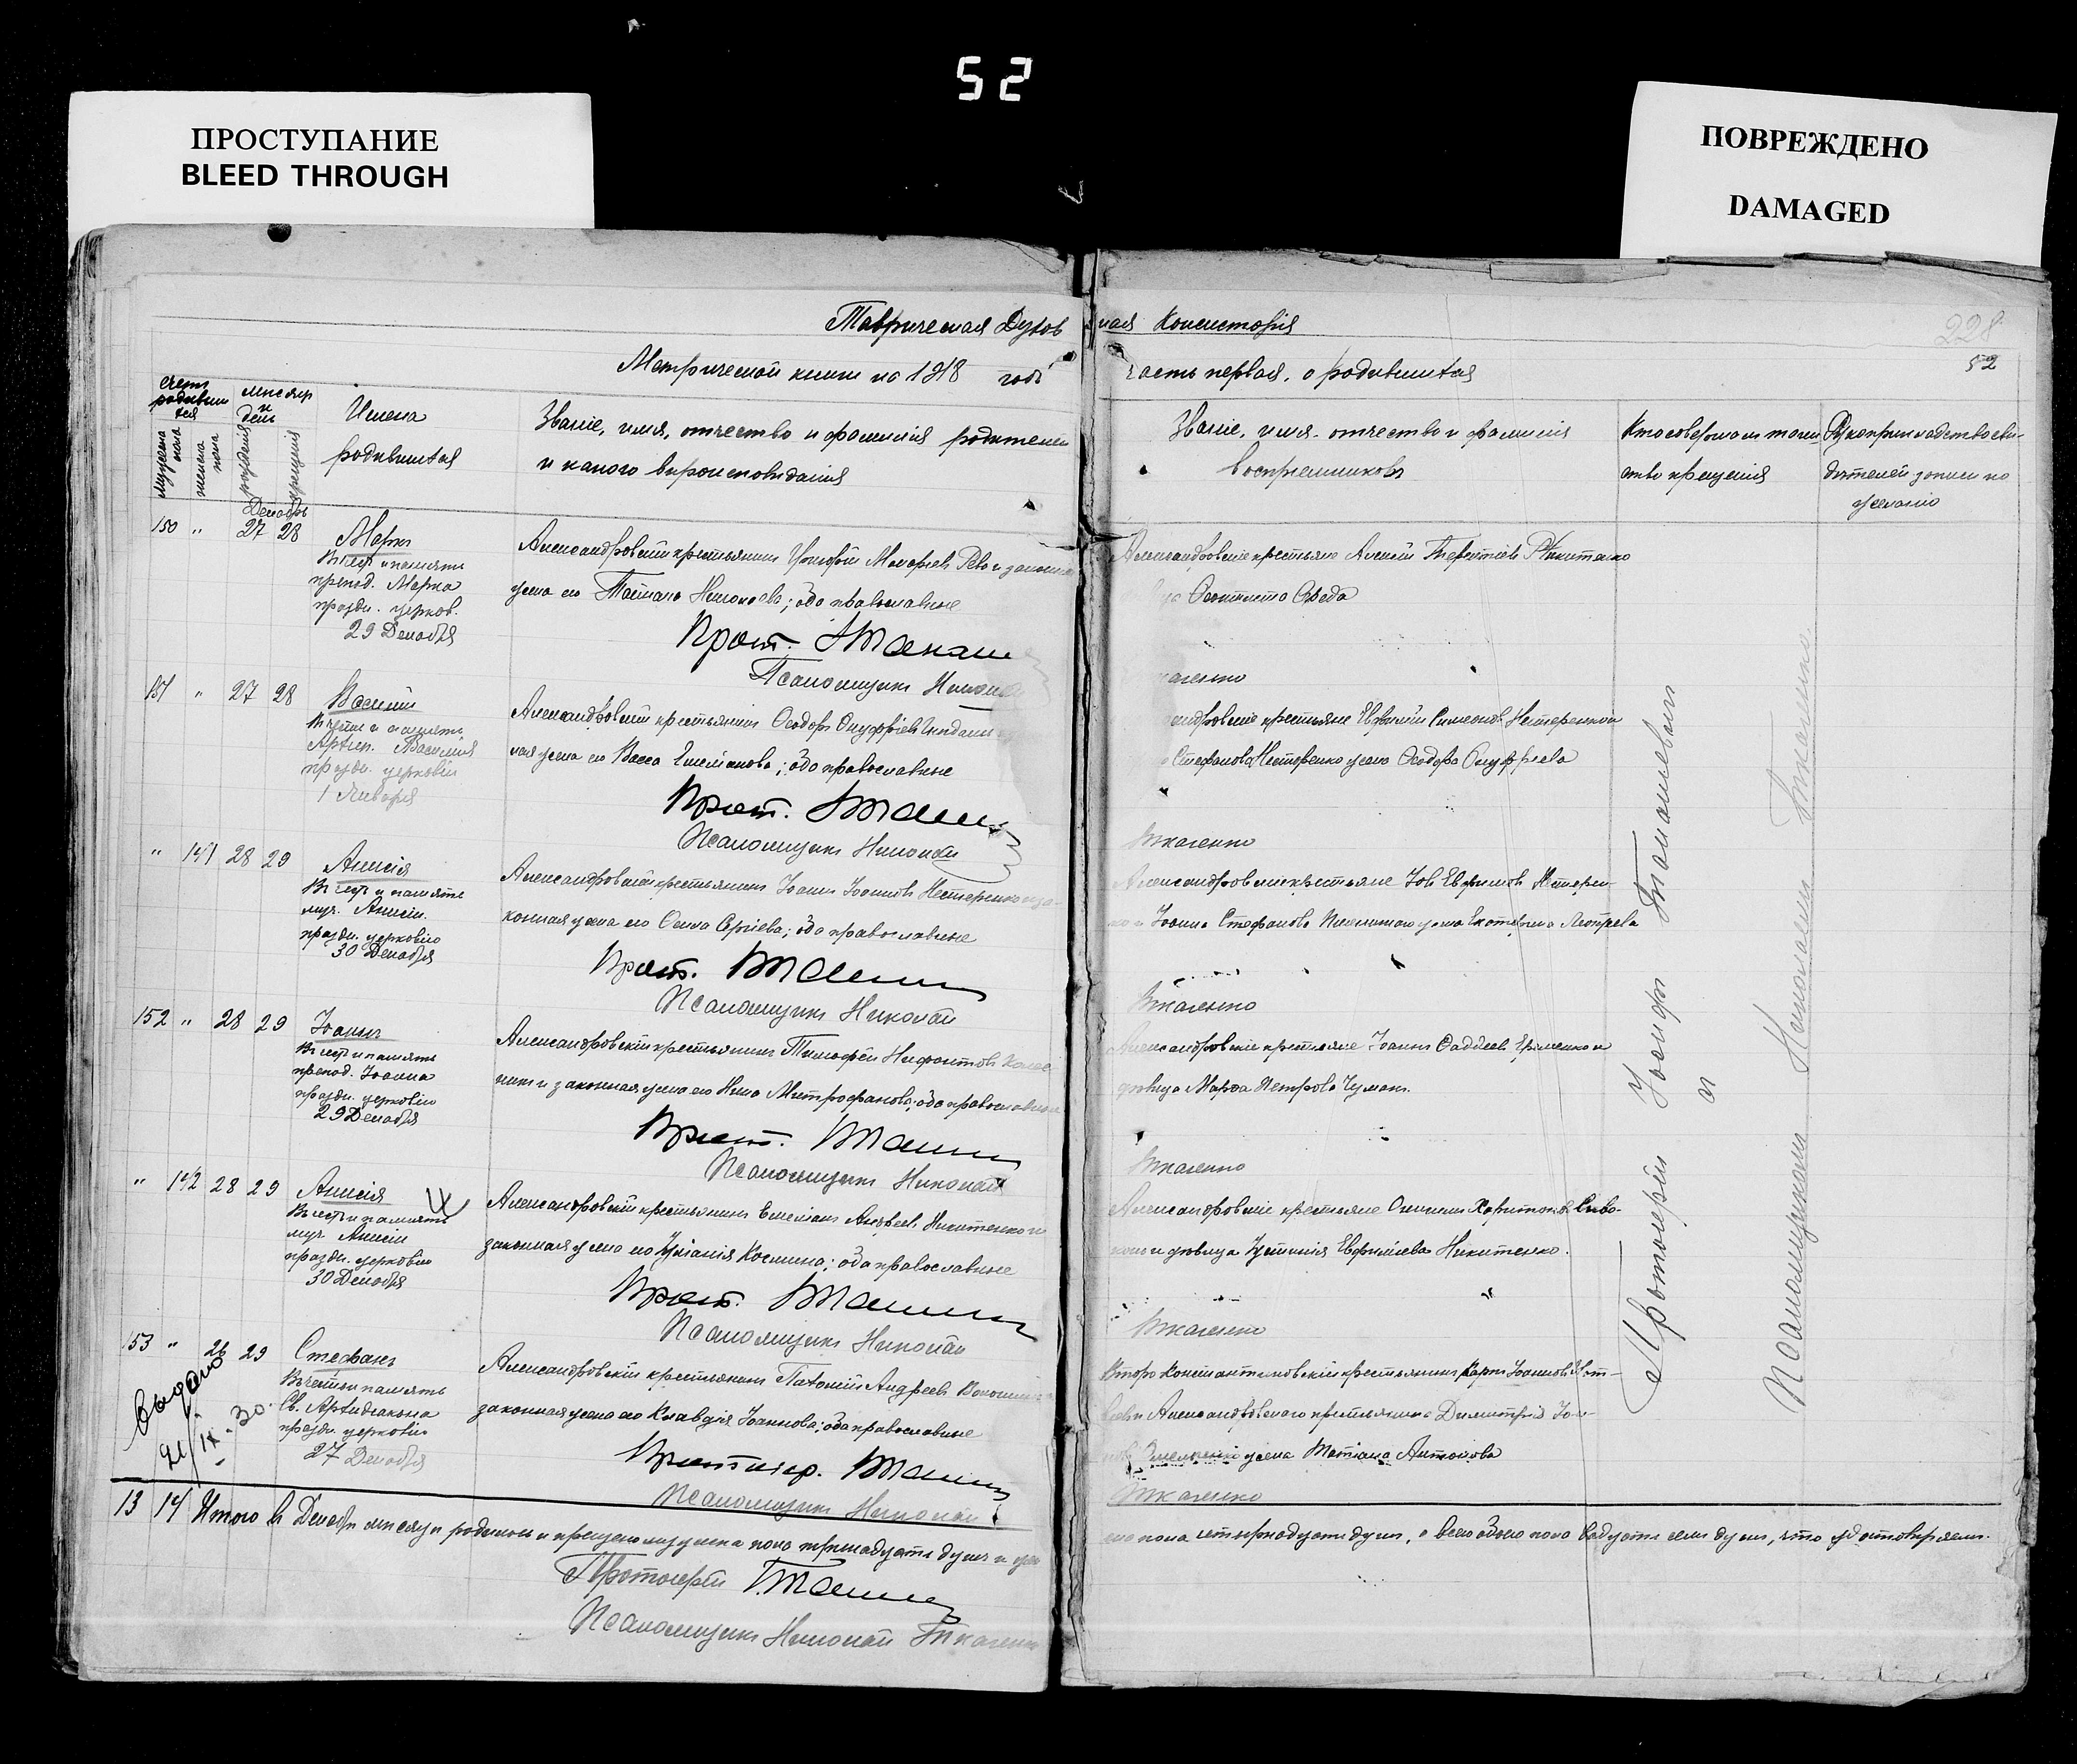 52
ПРОСТУПАНИЕ
BLEED THROUGH
ПОВРЕЖДЕНО
DAMAGED
Таврическая Духовная Консисторія
228
52
Метрической книги на 1918 годъ часть первая, о родившихся
Счетъ родившихся
мужеска пола
женска пола
Мѣсяцъ и день
рожденія
крещенія
Имена родившихся
Званіе, имя, отчество и фамилія родителей
и какого вѣроисповѣданія
Званіе, имя, отчество и фамилія
воспріемниковъ
Кто совершалъ таин-
ство крещенія
Рукоприкладство сви-
дѣтелей записи по
желанію
Декабрь
150 " 27 28
Маркъ
Въ честь и память
препод. Марка
праздн. церков.
29 Декабря
Александровскій крестьянинъ Григорій Макаріевъ и законная
жена его Татіана; оба православные
Прот.
Псаломщикъ Николай
Александровскіе крестьяне Алексій Терентіевъ Никитенко
151 " 27 28
Василій
Въ честь и память
Архіеп. Василія
праздн. церковію
1 Января
Александровскій крестьянинъ Ѳеодоръ Онуфріевъ
ная жена его Васса Емеліанова; оба православные
Прот.
Псаломщикъ Николай
Ткаченко
андровскіе крестьяне Евфимій Симеоновъ Нестеренко и
Стефанова Нестеренко жена Ѳеодора Онуфріева
" 141 28 29
Анисія
Въ честь и память
муч. Анисіи
праздн. церковію
30 Декабря
Александровскій крестьянинъ Іоаннъ Іоанновъ Нестеренко и за-
конная жена его Сергіева; оба православные
Прот.
Псаломщикъ Николай
Ткаченко
Александровскіе крестьяне Іовъ Евфимовъ Нестерен-
ко и Іоанна Стефанова жена Екатерина Петрова
152 " 28 29
Іоаннъ
Въ честь и память
препод. Іоанна
праздн. церковію
29 Декабря
Александровскій крестьянинъ Тимофей Нифонтовъ
и законная жена его Нина Митрофанова; оба православные
Прот.
Псаломщикъ Николай
Ткаченко
Александровскіе крестьяне Іоаннъ Ѳаддеевъ Еременко и
дѣвица Марѳа Петрова Чумакъ.
" 142 28 29
Анисія
Въ честь и память
муч. Анисіи
праздн. церковію
30 Декабря
Александровскій крестьянинъ Емеліанъ Андреевъ Никитенко и
законная жена его Іуліанія Космина; оба православные
Прот.
Псаломщикъ Николай
Ткаченко
Александровскіе крестьяне Харитоновъ Сиво-
конь и дѣвица Іустинія Евфиміева Никитенко.
Ткаченко
153 " 26 29
Стефанъ
Въ честь и память
Св. Архидіакона
праздн. церковію
27 Декабря
Выдано
21/IX-30.
Александровскій крестьянинъ Пахомій Андреевъ
законная жена его Клавдія Іоаннова; оба православные
Протоіер.
Псаломщикъ Николай
Второ Константиновскій крестьянинъ Карпъ Іоанновъ
Александровскаго крестьянина Димитрія Іоан-
жена Татіана Антонова
Ткаченко
Протоіерей Іосифъ
и
Псаломщикъ Николай Ткаченко
13 14 Итого въ Декабрѣ мѣсяцѣ родилось и крещено мужеска пола тринадцать душъ и жен
ско пола четырнадцать душъ, а всего обоего пола двадцать семь душъ, что удостовѣряемъ.
Протоіерей
Псаломщикъ Николай Ткаченко